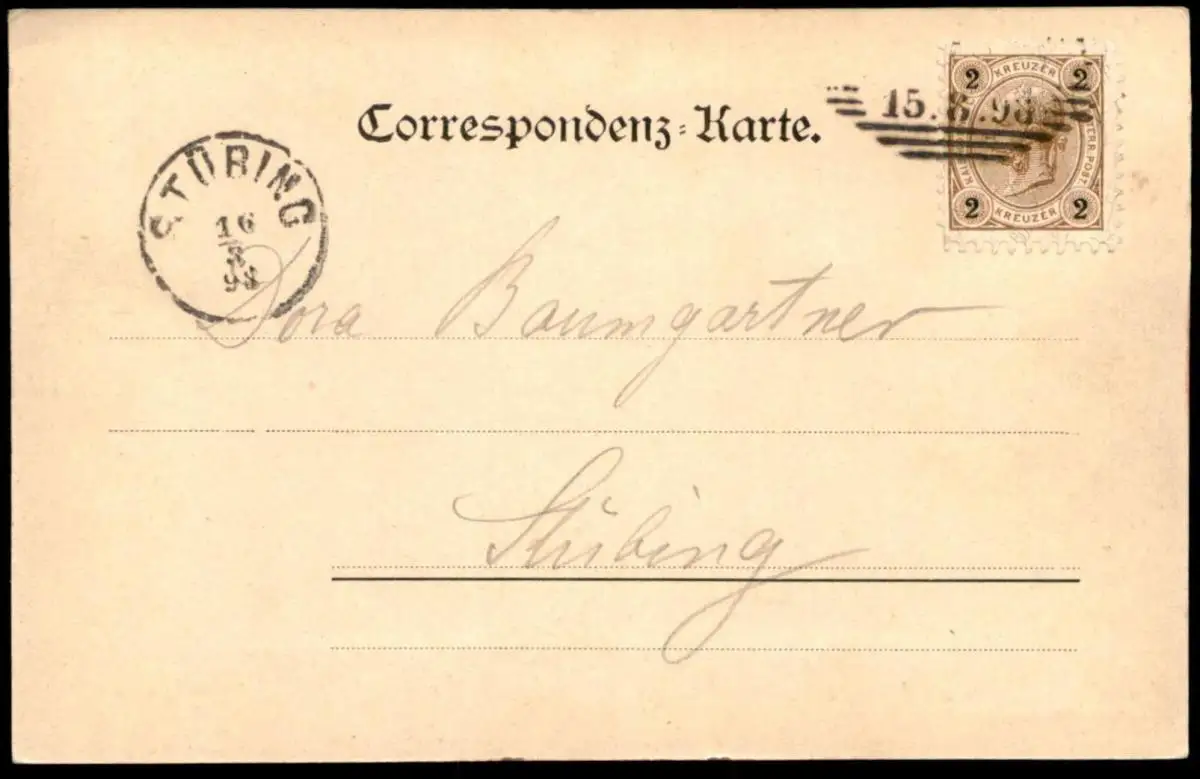 2 KREUZER 2
15.8.98
Correspondenz-Karte.
2 KREUZER 2
STÜBING
16
8
98
Dora Baumgartner
Stübing